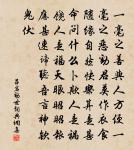 一毫之善與人方便一
毫之惡勸君莫作衣食
隨緣自然快樂算甚麼
命問什么卜欺人是禍
饒人是福天眼昭昭報
應甚速諦聽吾言神欽
鬼伏
吕岩勸世詞